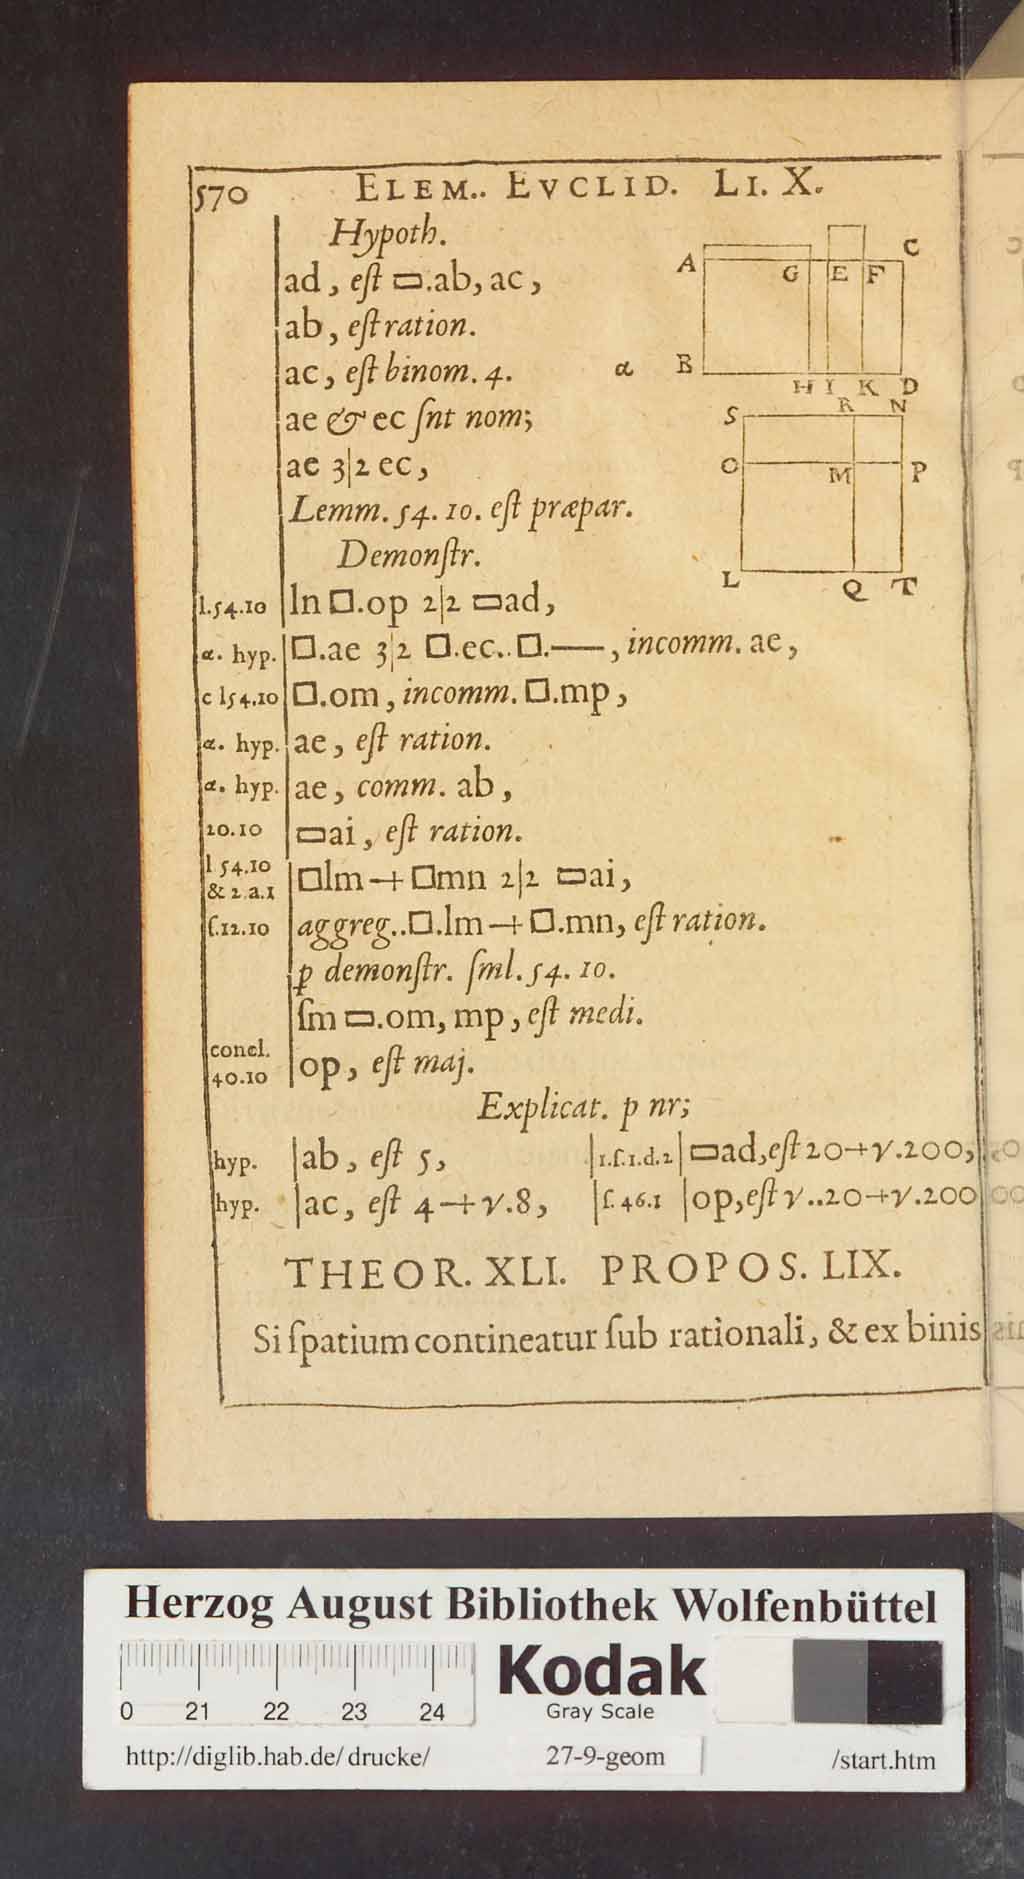 570 ELEM.. EVCLID. LI. X.
Hypoth.
ad, eſt ▭.ab, ac,
ab, eſt ration.
ac, eſt binom. 4.
ae & ec ſnt nom;
ae 3|2 ec,
Lemm. 54. 10. eſt præpar.
A G E F C
α B H I K D
S R N
O M P
L Q T
Demonſtr.
l.54.10 ln □.op 2|2 ▭ad,
α. hyp. □.ae 3|2 □.ec..□.——, incomm. ae,
c l54.10 □.om, incomm. □.mp,
α. hyp. ae, eſt ration.
α. hyp. ae, comm. ab,
20.10 ▭ai, eſt ration.
l 54.10
& 2.a.1 □lm-+□mn 2|2 ▭ai,
ſ.12.10 aggreg..□.lm-+□.mn, eſt ration.
p demonſtr. ſml. 54. 10.
ſm ▭.om, mp, eſt medi.
concl.
40.10 op, eſt maj.
Explicat. p nr;
hyp. |ab, eſt 5, |1.ſ.1.d.2| ▭ad,eſt 20-+√.200,
hyp. |ac, eſt 4-+√.8, |ſ. 46.1 |op,eſt √..20-+√.200
THEOR. XLI. PROPOS. LIX.
Si ſpatium contineatur ſub rationali, & ex binis
Herzog August Bibliothek Wolfenbüttel
0 21 22 23 24
Kodak
Gray Scale
http://diglib.hab.de/drucke/ 27-9-geom /start.htm